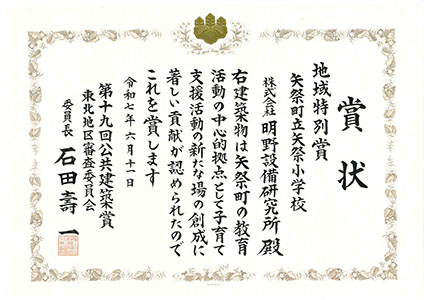 賞状
地域特別賞
矢祭町立矢祭小学校
株式会社 明野設備研究所 殿
右建築物は矢祭町の教育
活動の中心的拠点として子育て
支援活動の新たな場の創成に
著しい貢献が認められたので
これを賞します
令和七年六月十一日
第十九回公共建築賞
東北地区審査委員会
委員長 石田壽一